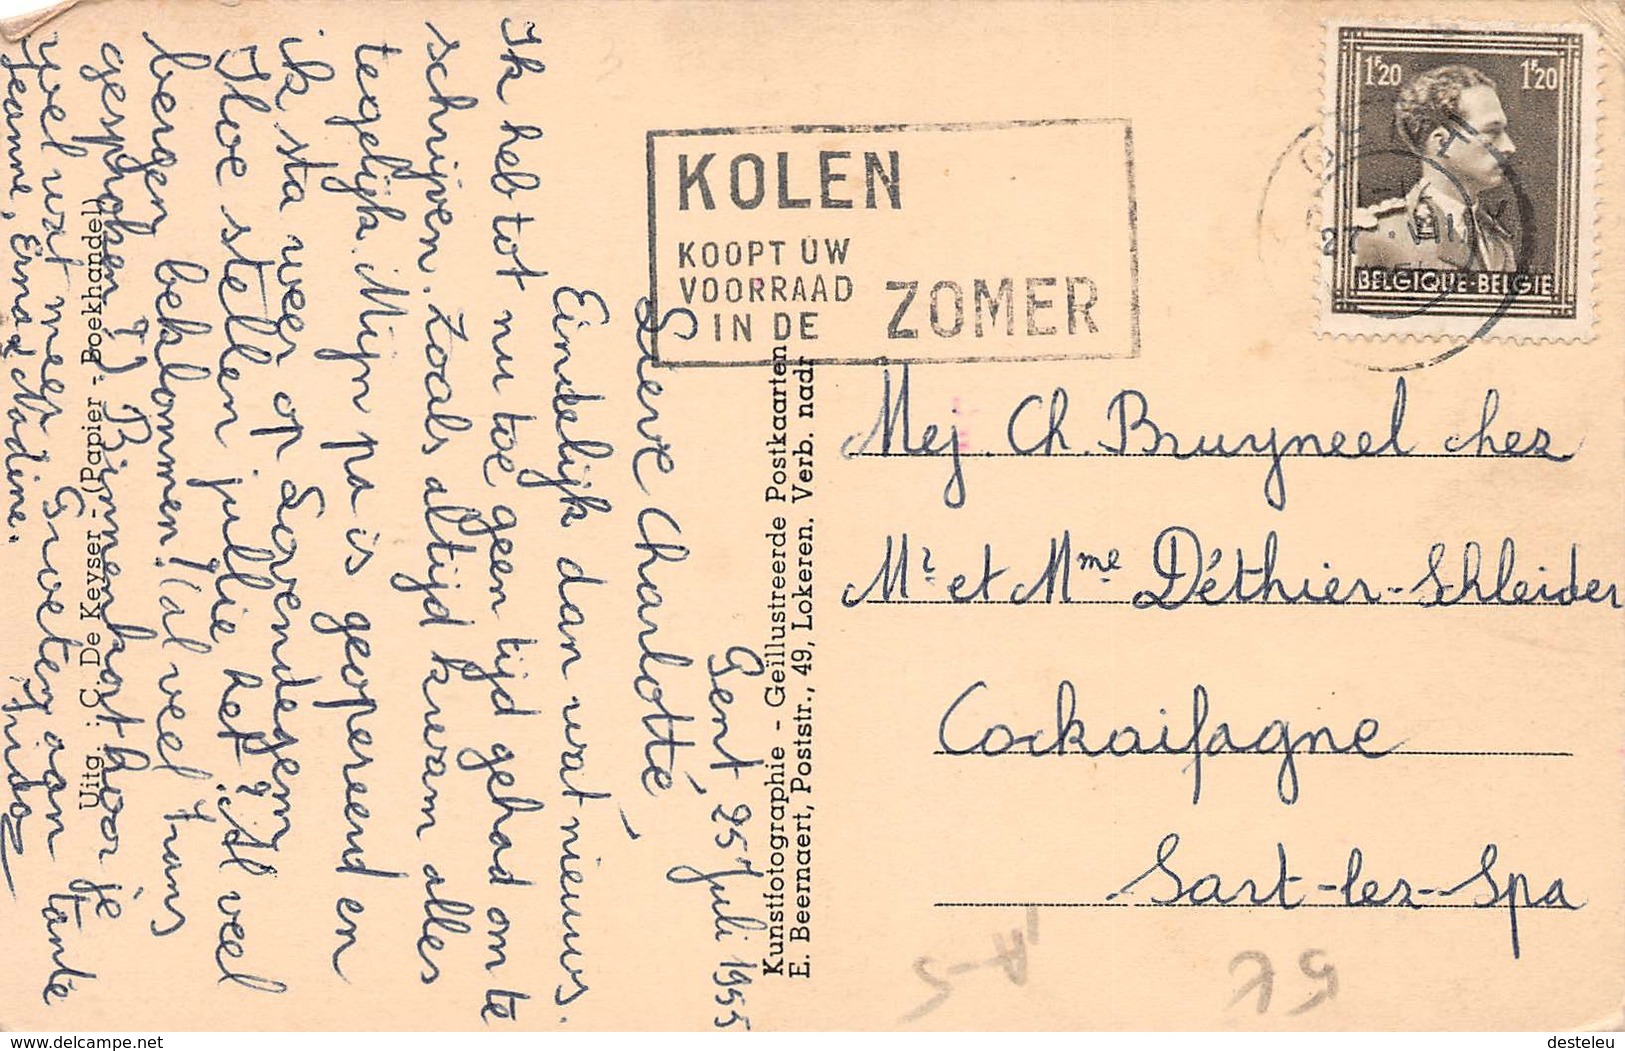 Gent, 25 Juli 1955
Lieve Charlotte,
Eindelijk dan wat nieuws.
Ik heb tot nu toe geen tijd gehad om te
schrijven. Zoals altijd kwam alles
tegelijk. Mijn pa is geopereerd en
ik sta weer op
Hoe stellen jullie het? Al veel
bergen beklommen? Al veel frans
gesproken? Binnenkort hoor je
wel wat meer. Groeten aan tante
Jeanne, Erna & Nadine.
KOLEN
KOOPT UW
VOORRAAD
IN DE ZOMER
1F20 1F20
BELGIQUE-BELGIE
Mej. Ch. Bruyneel chez
Mr et Mme Déthier-Schleider
Cockaifagne
Sart-lez-Spa
Kunstfotographie - Geïllustreerde Postkaarten
E. Beernaert, Poststr., 49, Lokeren. Verb. nadr
Uitg. : C. De Keyser - (Papier - Boekhandel)
A-5
5K
www.delcampe.net
desteleu